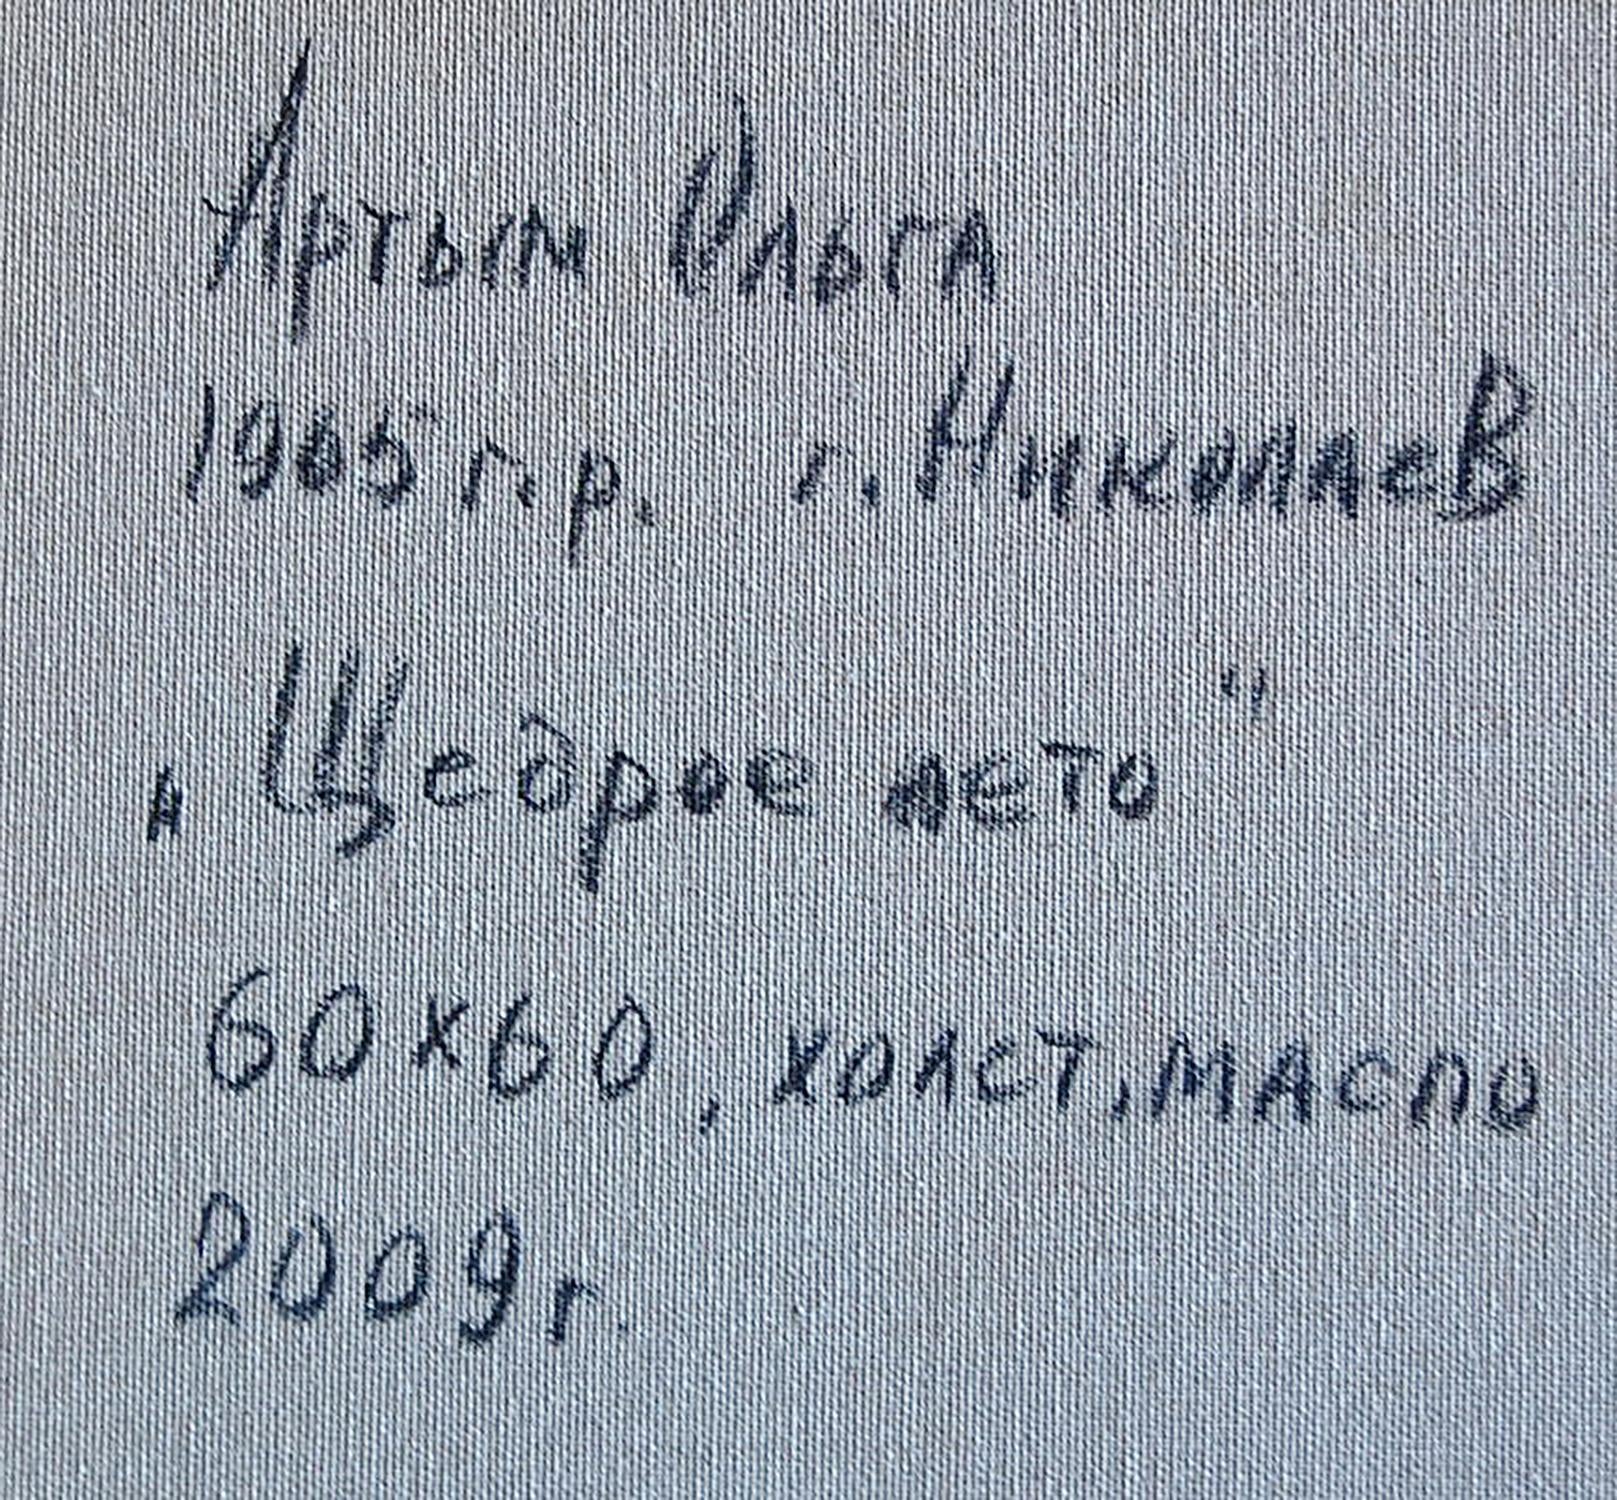 Артым Ольга
1965 г.р. г. Николаев
„Щедрое лето"
60х60, холст, масло
2009г.